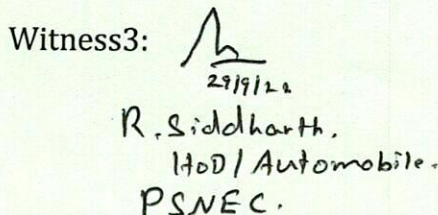 Witness3:
29/9/22
R. Siddharth.
HoD/Automobile.
PSNEC.